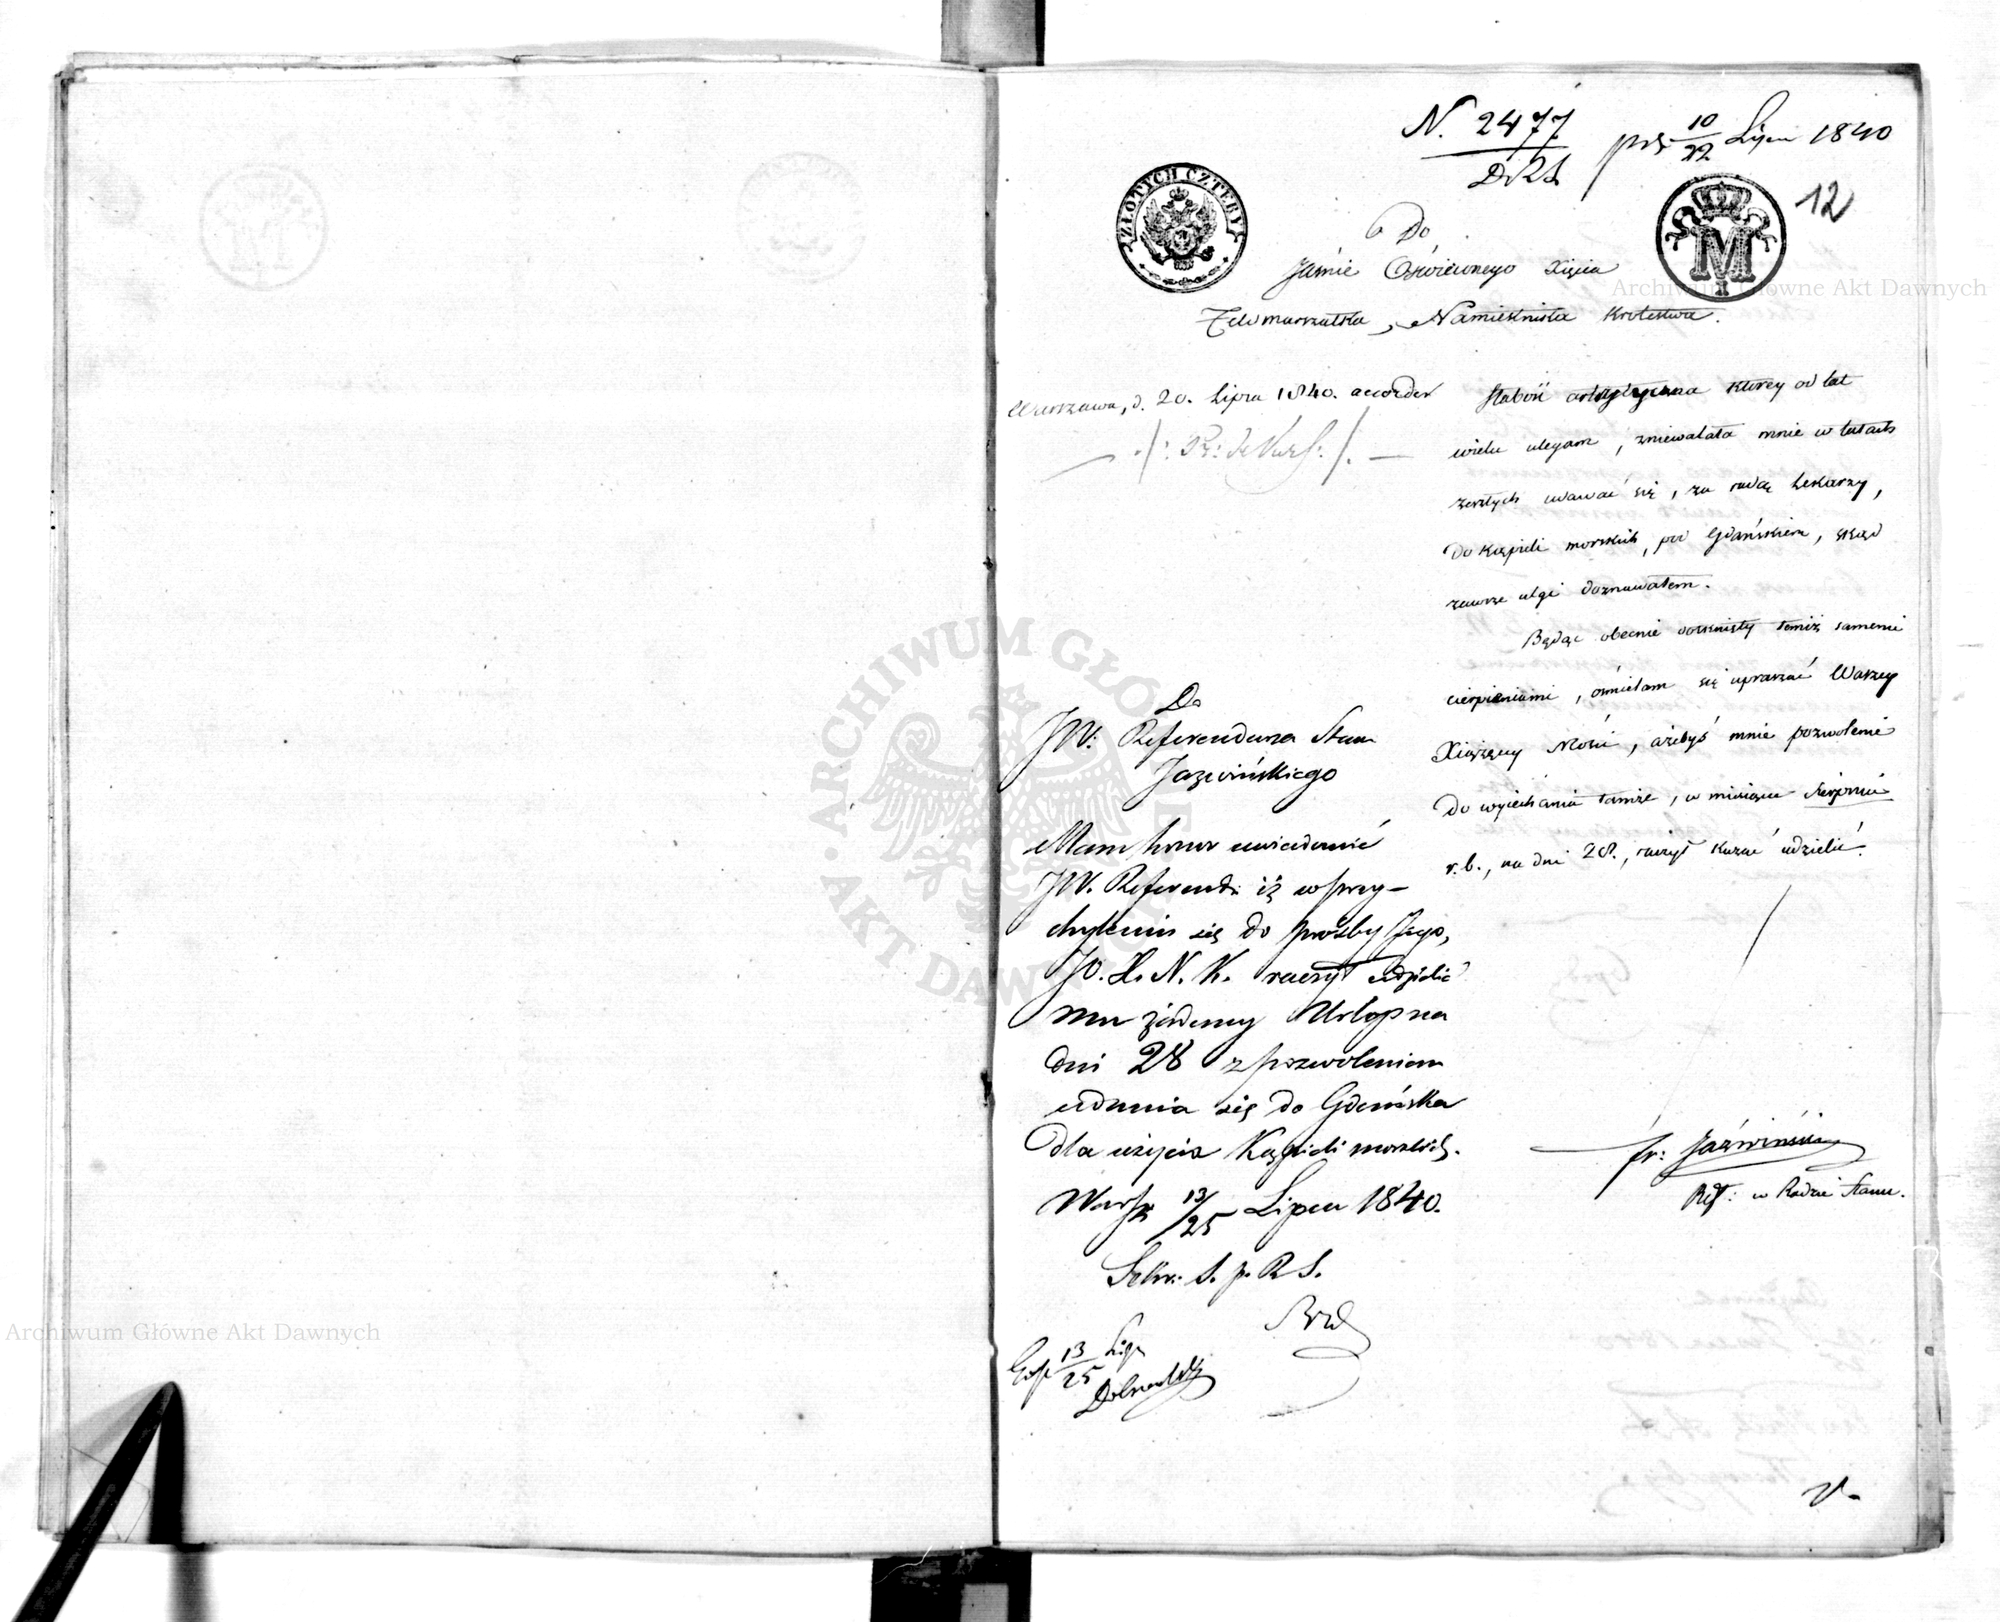 N. 2477
D.R.S.
10/22 Lipca 1840
12
ZŁOTYCH CZTERY
M
Do
Jaśnie Oświeconego Xięcia
Feldmarszałka, Namiestnika Krolestwa.
Warszawa, d. 20. Lipca 1840. accorder
Słabość artrytyczna ktorey od lat
wielu ulegam, zniewalała mnie w latach
zeszłych udawać się, za radą Lekarzy,
do kąpieli morskich, pod Gdańskiem, skąd
zawsze ulgi doznawałem.
Będąc obecnie dotknięty temiż samemi
cierpieniami, ośmielam się upraszać Waszey
Xiążęcey Mości, ażebyś mnie pozwolenie
do wyiechania tamże, w miesiącu Sierpniu
r.b., na dni 28., raczył kazać udzielić.
fr: Jaźwiński
Ref: w Radzie Stanu.
Do
JW: Referendarza Stanu
Jaźwińskiego
Mam honor uwiadomić
JW. Referend: iż w przy-
chyleniu się do prośby Jego,
JO. X. N. K. raczył udzielić
mu żądany Urlop na
dni 28 z pozwoleniem
udania się do Gdańska
dla użycia Kąpieli morskich.
Warsz 13/25 Lipca 1840.
Sekr: S. p. R S.
13/25 Lipc
ARCHIWUM GŁÓWNE AKT DAWNYCH
Archiwum Główne Akt Dawnych
Archiwum Główne Akt Dawnych